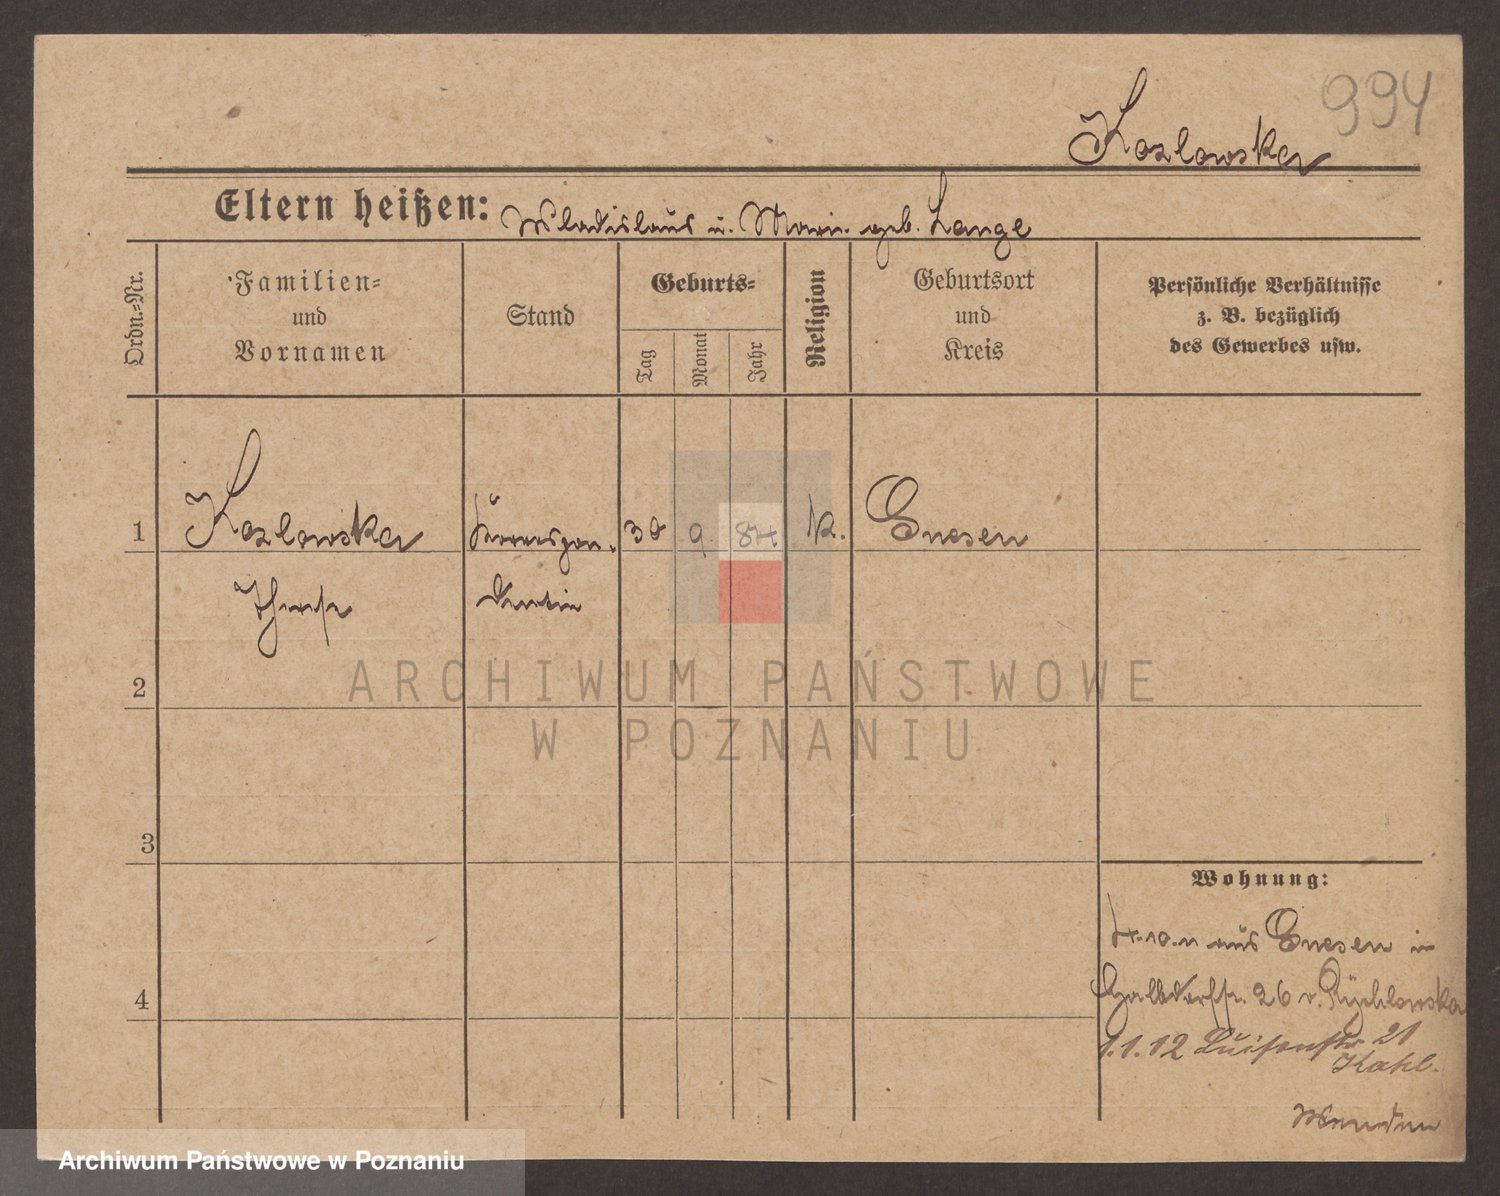 994
Kozlowska
Eltern heißen: Wladislaus u. Marie geb. Lange
Ordn.=Nr.
Familien=
und
Vornamen
Stand
Geburts=
Tag
Monat
Jahr
Religion
Geburtsort
und
Kreis
Persönliche Verhältnisse
z. B. bezüglich
des Gewerbes usw.
1 Kozlowska Korrespon. 30 9 84 K. Gnesen
Therese dentin
2
3
4
Wohnung:
4.10.11 aus Gnesen in
26 v. Rychlowska
1.1.12 Luisenstr. 21
Kahl.
ARCHIWUM PAŃSTWOWE
W POZNANIU
Archiwum Państwowe w Poznaniu